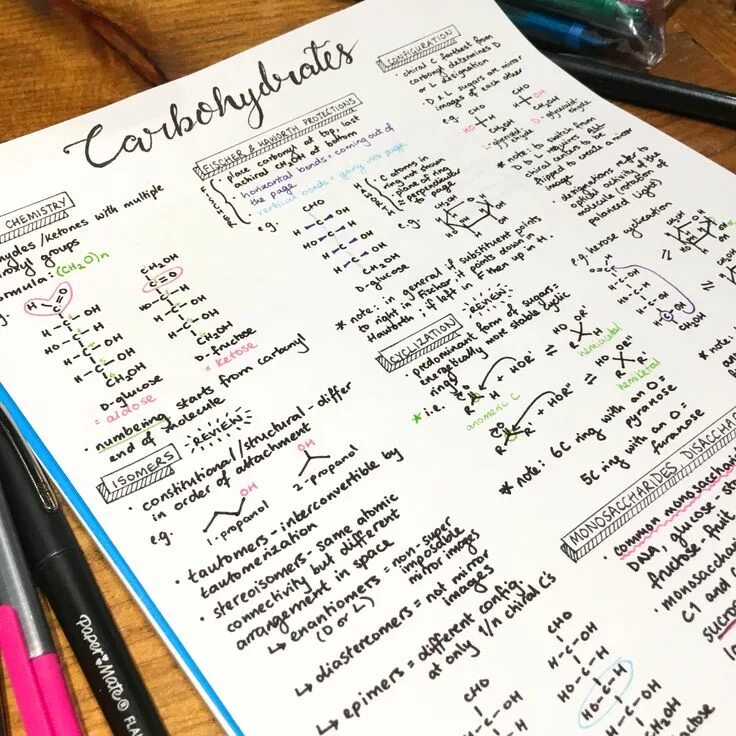 Carbohydrates
CHEMISTRY
/ketones with multiple
groups
(CH2O)n
H C O
H-C-OH
HO-C-H
H-C-OH
H-C-OH
CH2OH
D-glucose
= aldose
CH2OH
C=O
HO-C-H
H-C-OH
H-C-OH
CH2OH
D-fructose
= ketose
numbering starts from carbonyl
end of molecule
REVIEW
ISOMERS
• constitutional/structural - differ
in order of attachment
eg.
OH
1-propanol
OH
2-propanol
• tautomers - interconvertible by
tautomerization
• stereoisomers - same atomic
connectivity but different
arrangement in space
↳ enantiomers = non-super
(D or L) imposable
mirror images
↳ diastereomers = not mirror
images
↳ epimers = different config.
at only 1/n chiral C's
CHO
H-C-OH
CHO
HO-C-H
HO-C-H
FISCHER & HAWORTH PROJECTIONS
place carbonyl at top, last
achiral CH2OH at bottom
horizontal bonds = coming out of
the page
vertical bonds = going into page
e.g.
CHO
H-C-OH
HO-C-H
H-C-OH
H-C-OH
CH2OH
D-glucose
C atoms in
ring not shown
plane of ring
perpendicular
to page
e.g.
CH2OH
* note: in general if substituent points
to right in Fischer it points down in
Haworth; if left in F then up in H.
REVIEW
CYCLIZATION
• predominant form of sugars =
energetically more stable cyclic
ring
* i.e.
anomeric C
+ HOR'
⇌
HO OR'
R H
hemiacetal
+ HOR"
⇌
HO OR"
R R'
hemiketal
* note: 6C ring with an O =
pyranose
5C ring with an O =
furanose
CONFIGURATION
• chiral C farthest from
carbonyl determines D
or L designation
• D + L sugars are mirror
images of each other
CHO
HO H
CH2OH
L-
CHO
H OH
CH2OH
D-
* note: to switch from
D↔L requires ALL
chiral centers to be
flipped to create a mirror
image
• designations refer to
optical activity of the
molecule (rotation of
polarized light)
e.g. hexose cyclization
CH2OH
⇌
* note:
MONOSACCHARIDES DISACCHA
• common monosaccharid
DNA, glucose -
fructose - fruit
• monosacchar
C1 and
sucros